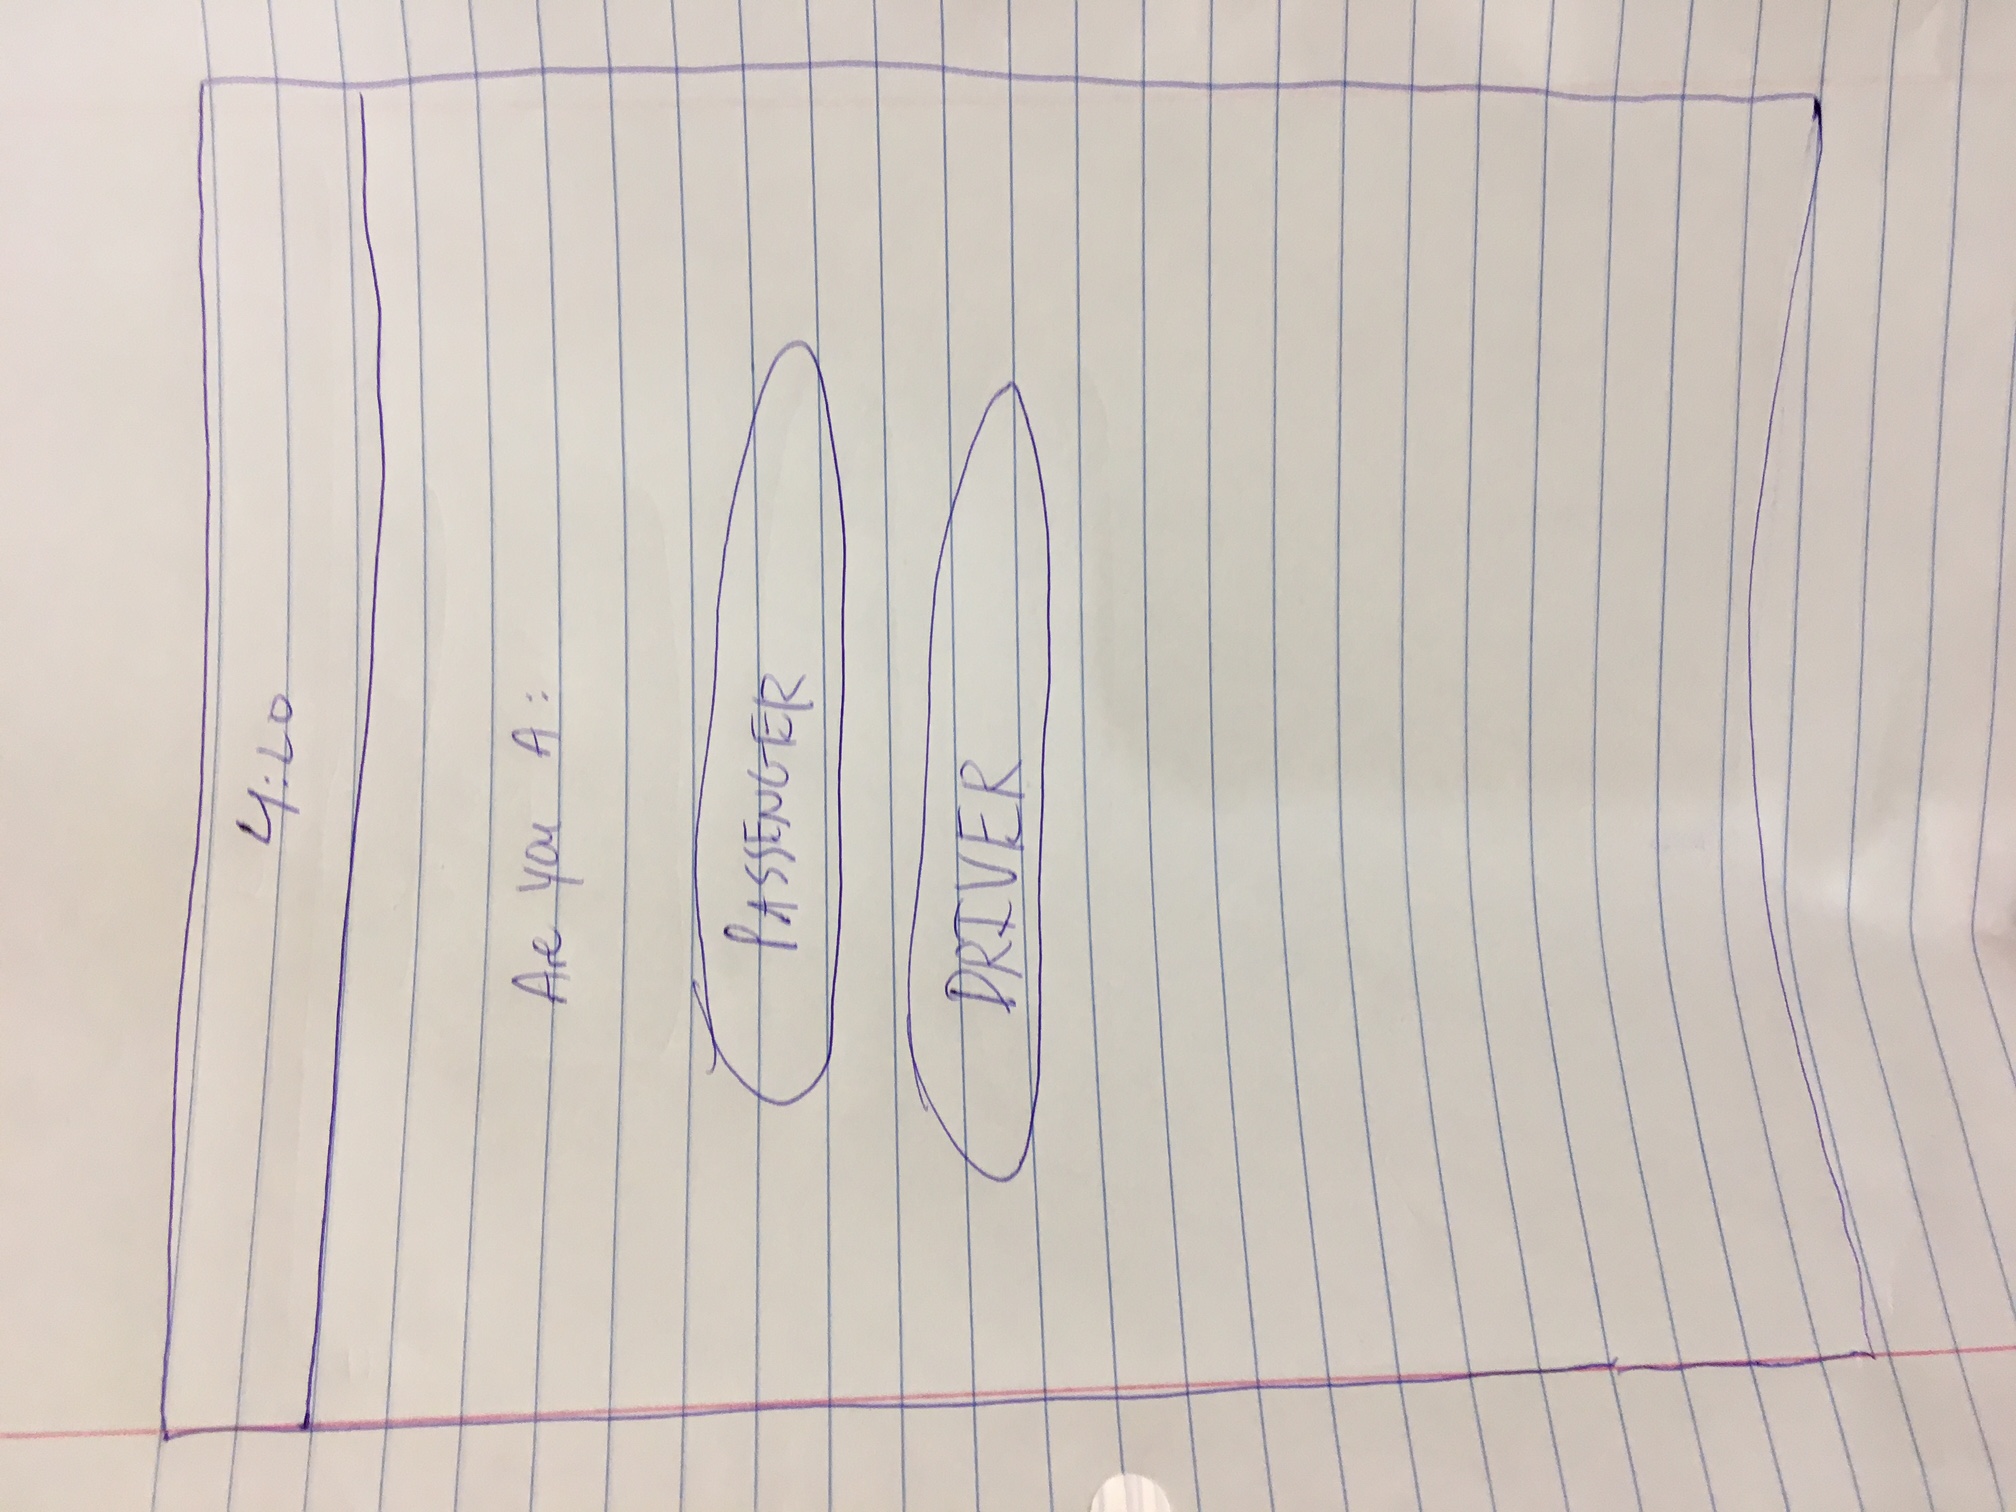 4:20
Are you A:
PASSENGER
DRIVER